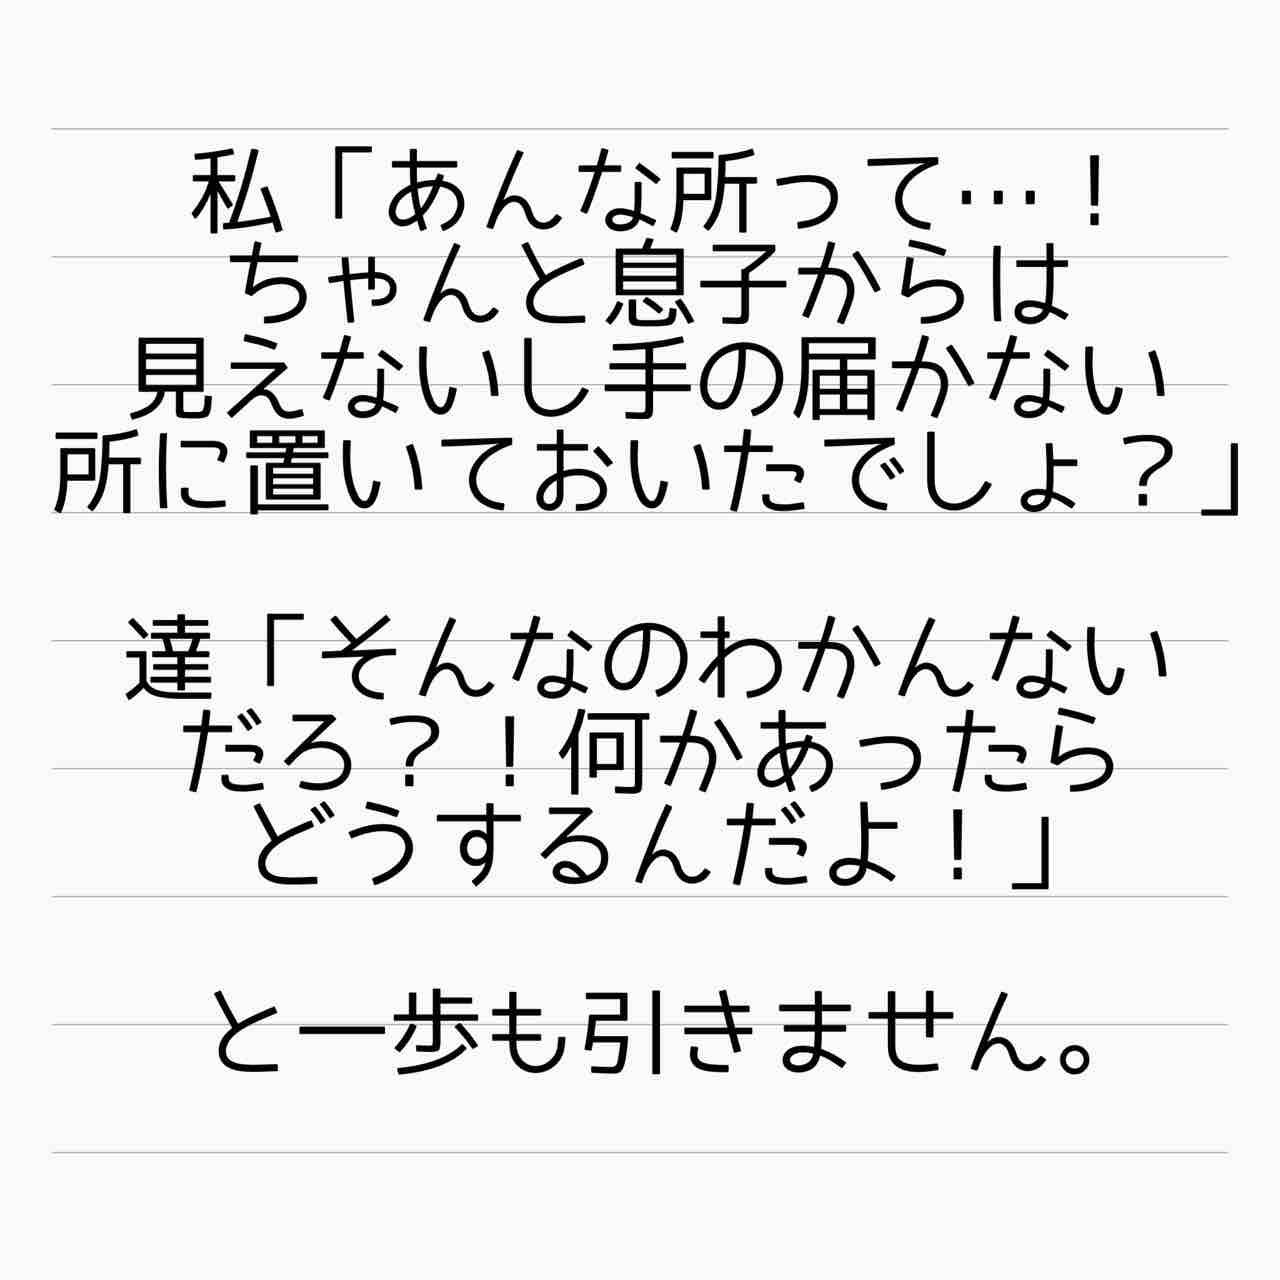 私「あんな所って…！
ちゃんと息子からは
見えないし手の届かない
所に置いておいたでしょ？」
達「そんなのわかんない
だろ？！何かあったら
どうするんだよ！」
と一歩も引きません。